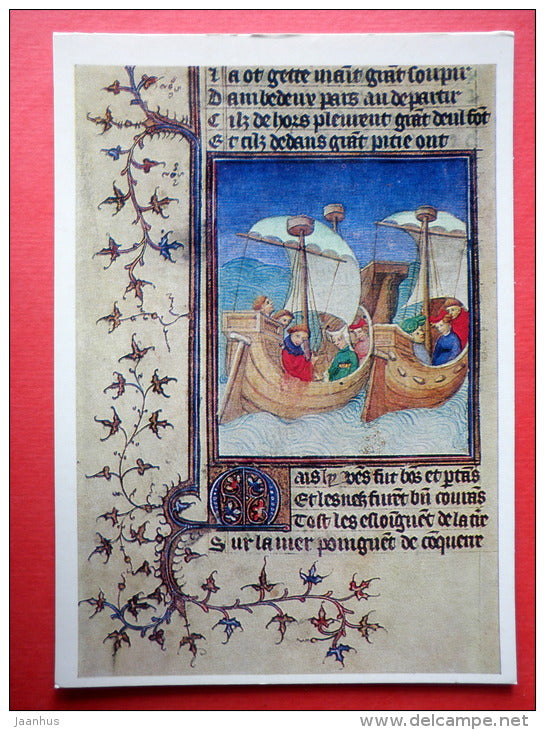 I a ot gette maīt grāt soupir
D ambedeux pars au departir
C ilz de hors pleurent grāt deul fōt
E t cilz dedans grāt pitie ont
M ais ly vēs fut bōs et
Et les nefz furēt
Tost les esloiguēt de la
S ur la mer poinguēt de
Jaanhus
www.delcampe.net